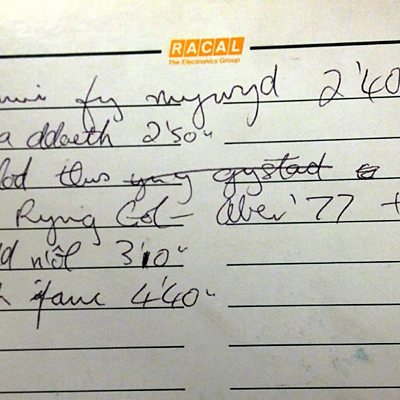 RACAL
The Electronics Group
fy mywyd 2'40
a ddaeth 2'50"
tlws yng gystad
Ryng Gol - Aber '77 +
n'ôl 3'10"
ifanc 4'40"